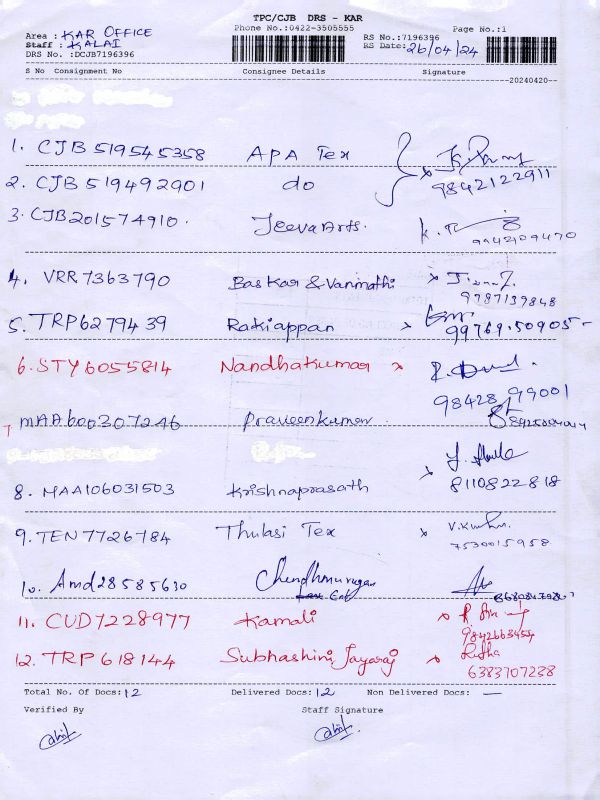 TPC/CJB DRS - KAR
Area : KAR OFFICE Phone No.:0422-3505555 Page No.:1
Staff : KALAI RS No.:7196396
DRS No. :DCJB7196396 RS Date: 26/04/24
S No Consignment No Consignee Details Signature
20240420--
1. CJB 519545358 APA Tex
2. CJB 519492901 do 9842122911
3. CJB201574910. Jeeva Arts. 9942109470
4. VRR7363790 Baskar & Vanmathi x 9787139848
5. TRP6279439 Rakiappan x 99769.50905-
6. STY6055814 Nandhakumar x
98428 99001
7 MAA600307246 Praveenkumar
8. MAA106031503 Krishnaprasath x 8110822818
9. TEN7726784 Thulasi Tex x
7530015958
10. Amd28585630
11. CUD7228977 Kamali x
9842663454
12. TRP618144 Subhashini Jayaraj x Lutha
6383707238
Total No. Of Docs:12 Delivered Docs:12 Non Delivered Docs: —
Verified By Staff Signature